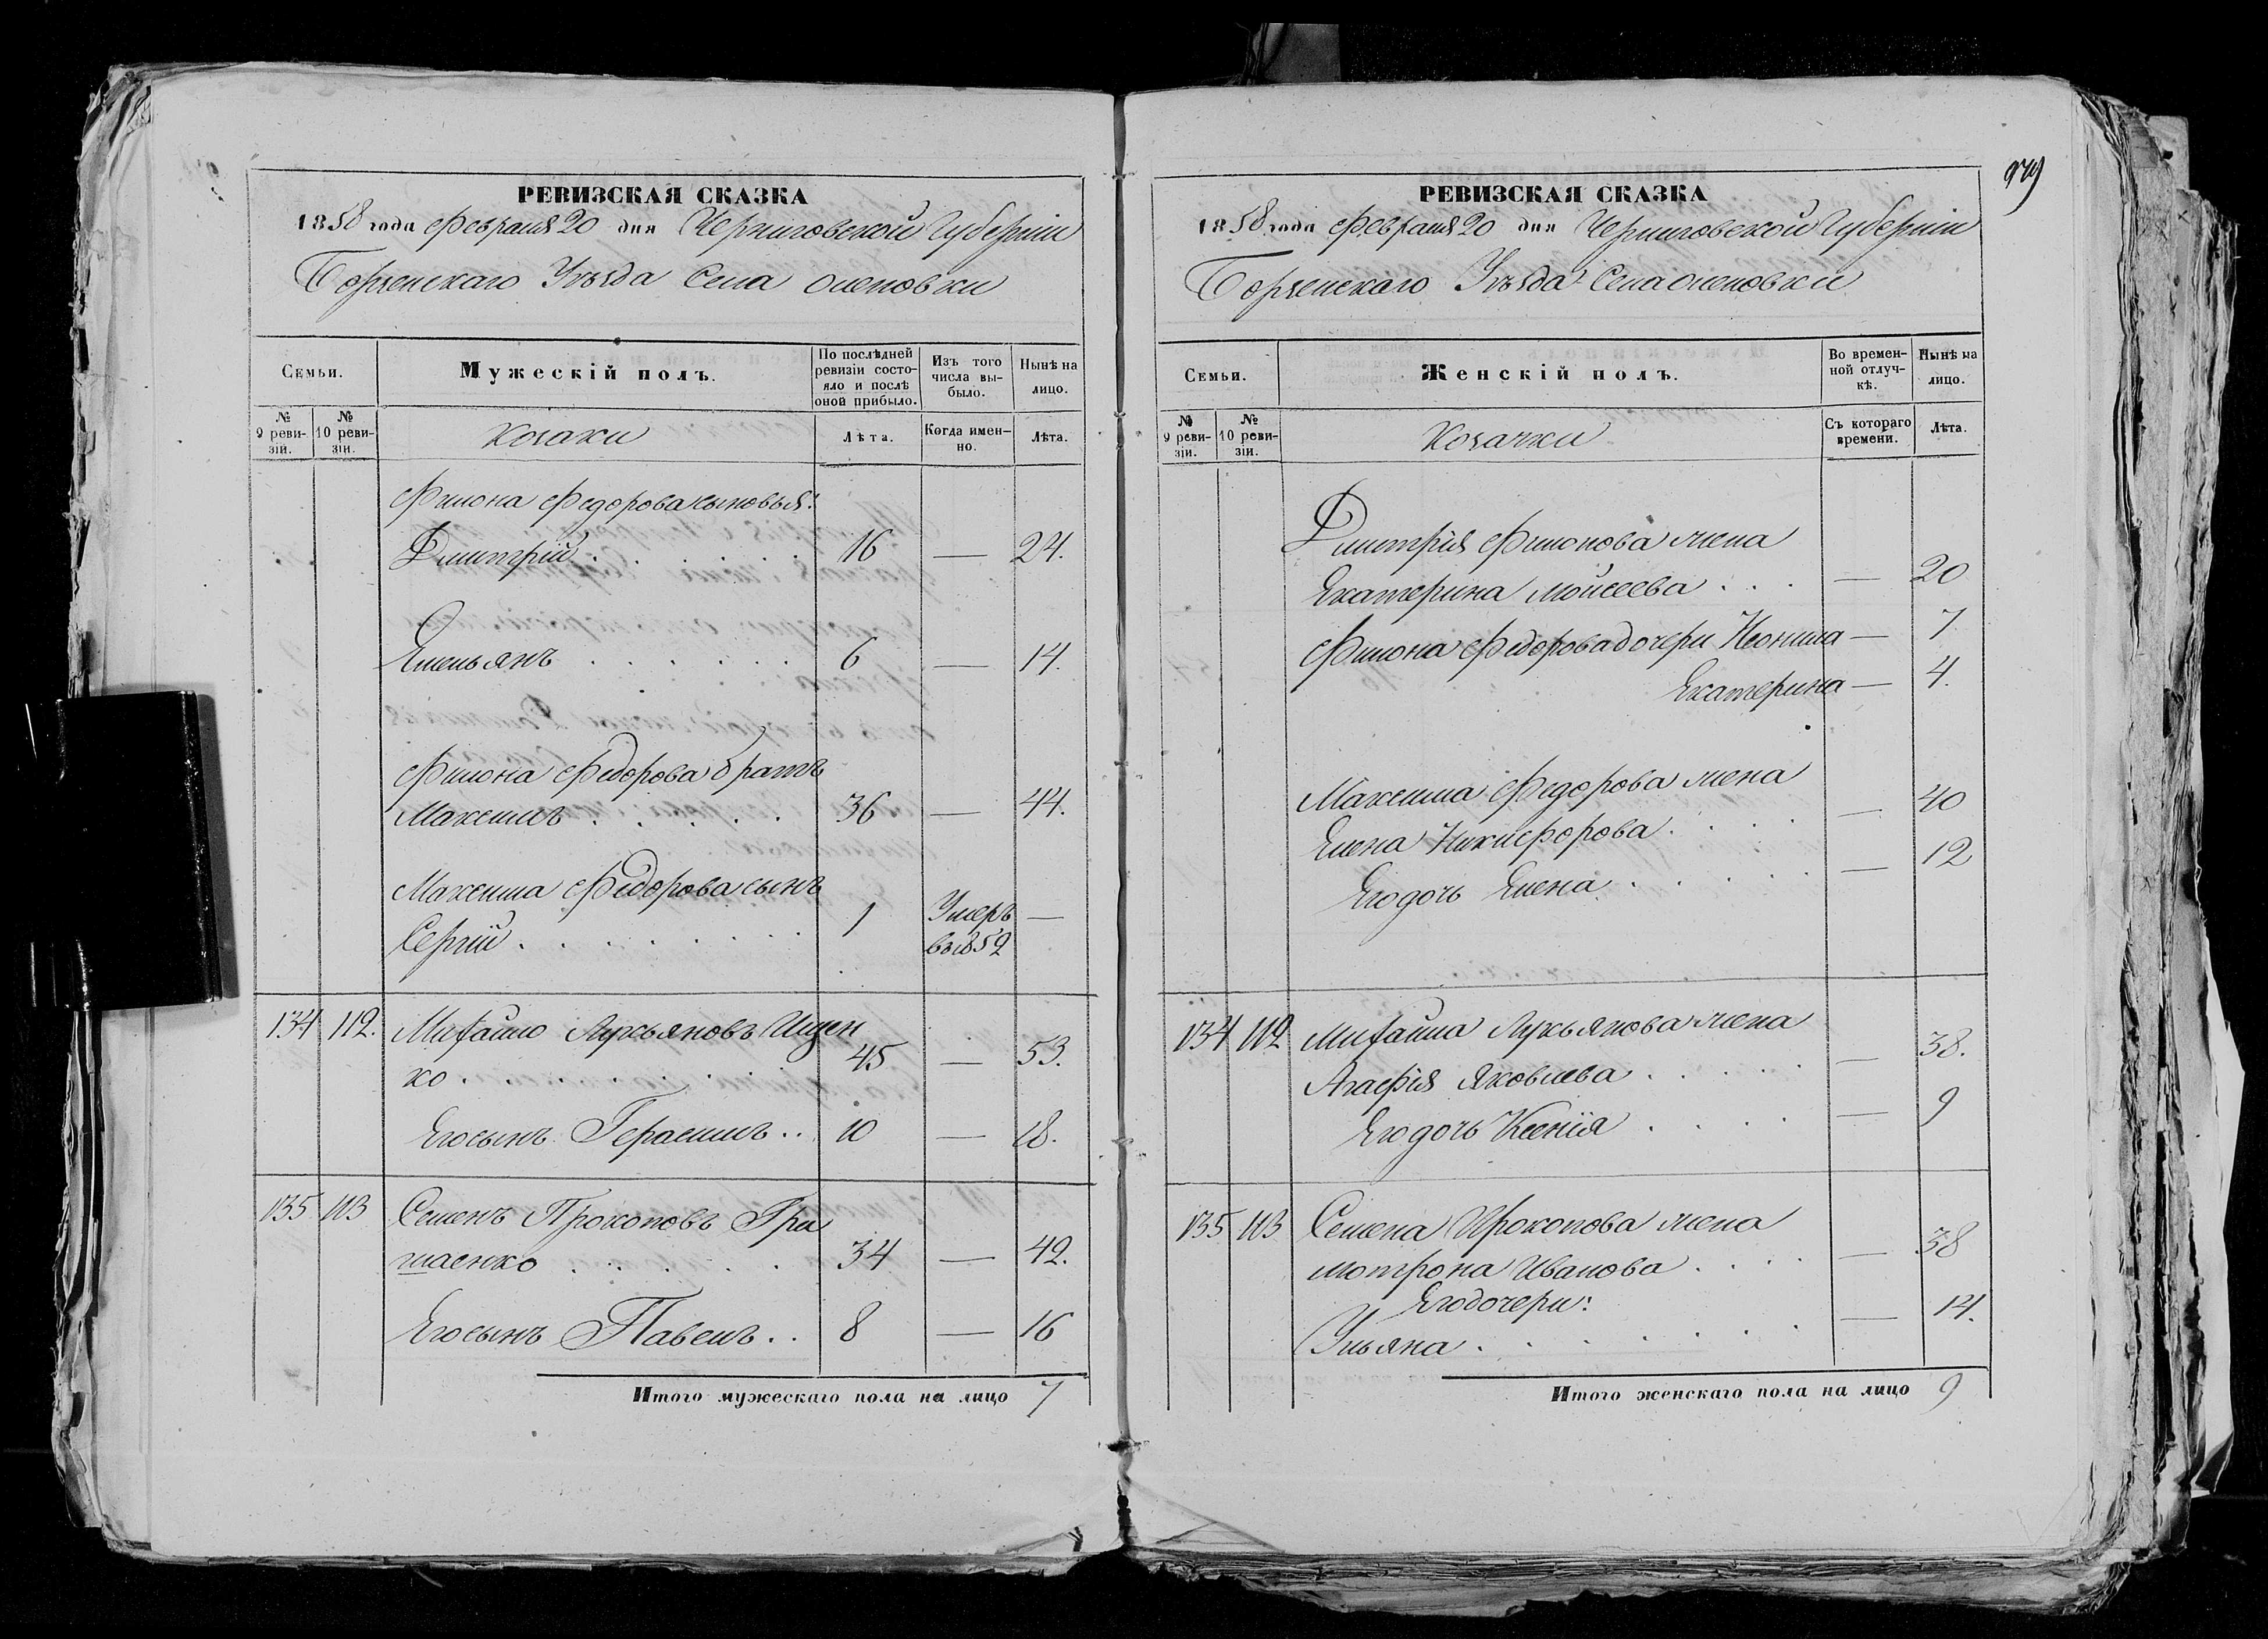 РЕВИЗСКАЯ СКАЗКА
1858 года Февраля 20 дня Черниговской Губерніи
Борзенскаго Уѣзда Села Оленовки
Семьи.
Мужескій полъ.
По послѣдней ревизіи состояло и послѣ оной прибыло.
Изъ того числа выбыло.
Нынѣ на лицо.
№ 9 ревизіи.
№ 10 ревизіи.
Козаки
Лѣта.
Когда именно.
Лѣта.
Филона Федорова сыновья:
Дмитрій . . . . . . 16 — 24.
Емельянъ . . . . . . 6 — 14.
Филона Федорова братъ
Максимъ . . . . . 36 — 44.
Максима Федорова сынъ
Сергій . . . . . . . . 1 Умеръ въ 1852 —
134 112. Михайло Лукьяновъ Ищен
ко . . . . . . . . 45 — 53.
Его сынъ Герасимъ . . 10 — 18.
135 113 Семенъ Прокоповъ Гри
шаенко . . . . . 34 — 42.
Его сынъ Павелъ . . 8 — 16
Итого мужескаго пола на лицо 7
979
РЕВИЗСКАЯ СКАЗКА
1858 года Февраля 20 дня Черниговской Губерніи
Борзенскаго Уѣзда Села Оленовки
Семьи.
Женскій полъ.
Во временной отлучкѣ.
Нынѣ на лицо.
№ 9 ревизіи.
№ 10 ревизіи.
Козачки
Съ котораго времени.
Лѣта.
Дмитрія Филонова жена
Екатерина Мойсеева . . . — 20
Филона Федорова дочери Неонила — 7
Екатерина — 4.
Максима Федорова жена
Елена Никифорова . . . . — 40
Его дочь Елена . . . . . — 12
134 112 Михайла Лукьянова жена
Агафія Яковлева . . . . . — 38.
Его дочь Ксенія . . . . — 9
135 113 Семена Прокопова жена
Мотрона Иванова . . . . — 38
Его дочери:
Ульяна . . . . . . . — 14.
Итого женскаго пола на лицо 9